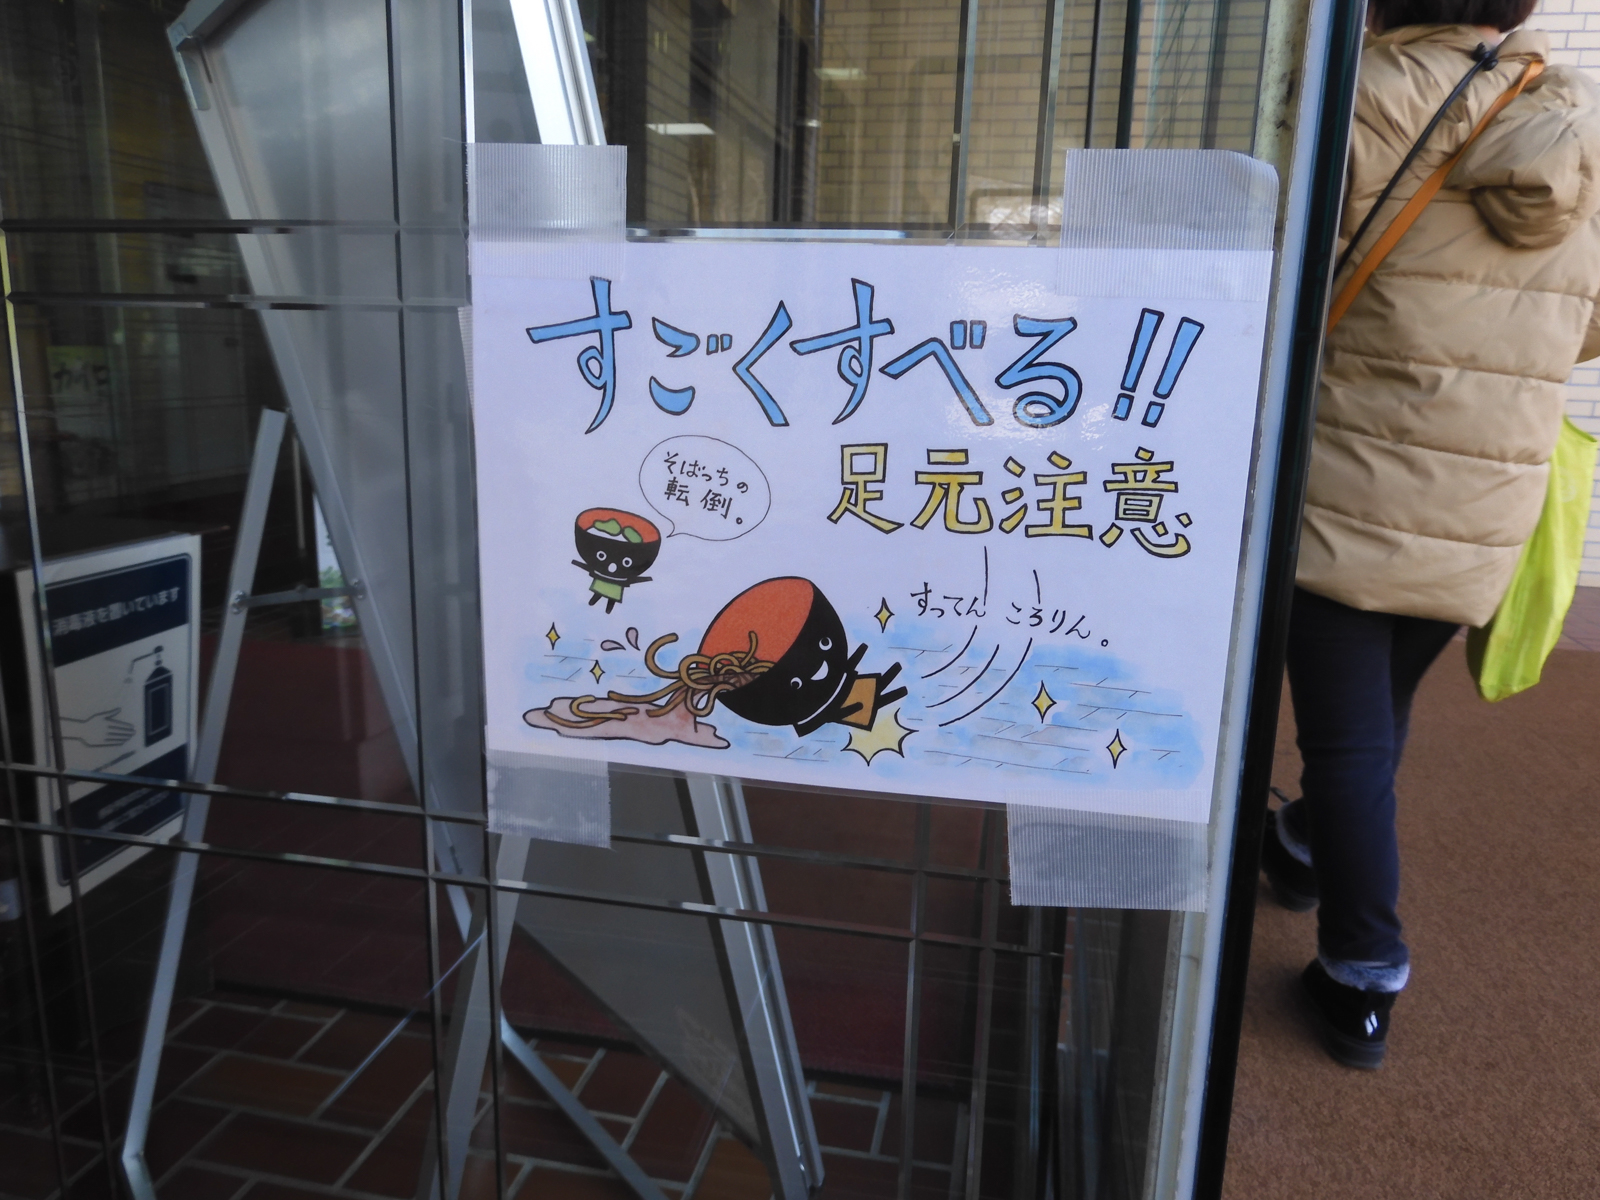 すごくすべる!!
足元注意
そばっちの
転倒。
すってんころりん。
消毒液を置いています